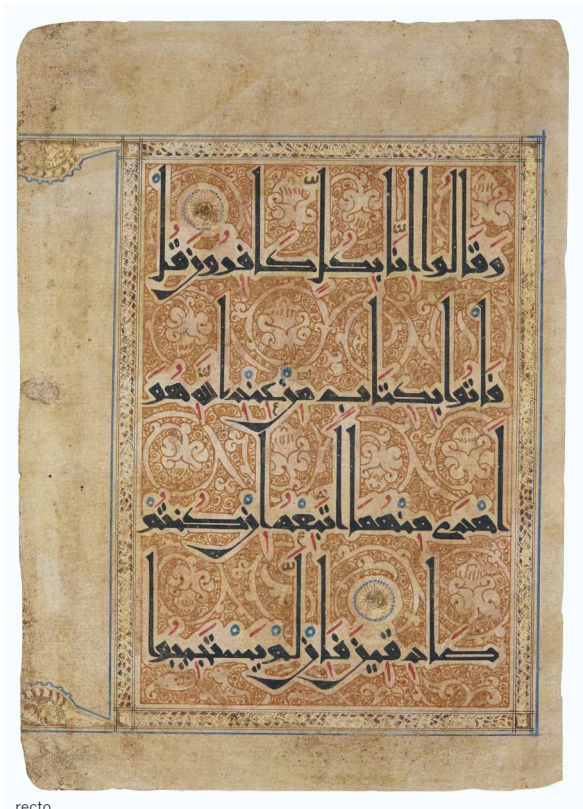 وَقَالُوا إِنَّا بِكُلٍّ كَافِرُونَ قُلْ
فَأْتُوا بِكِتَابٍ مِنْ عِنْدِ اللَّهِ هُوَ
أَهْدَى مِنْهُمَا أَتَّبِعْهُ إِنْ كُنْتُمْ
صَادِقِينَ فَإِنْ لَمْ يَسْتَجِيبُوا
recto